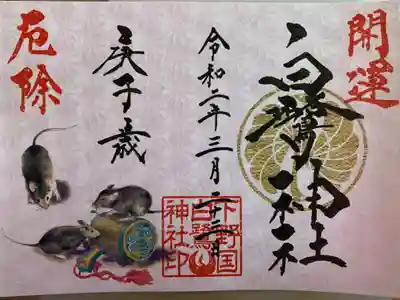 開運
白鷺神社
令和二年三月二十二日
庚子歳
厄除
下野国
白鷺
神社印